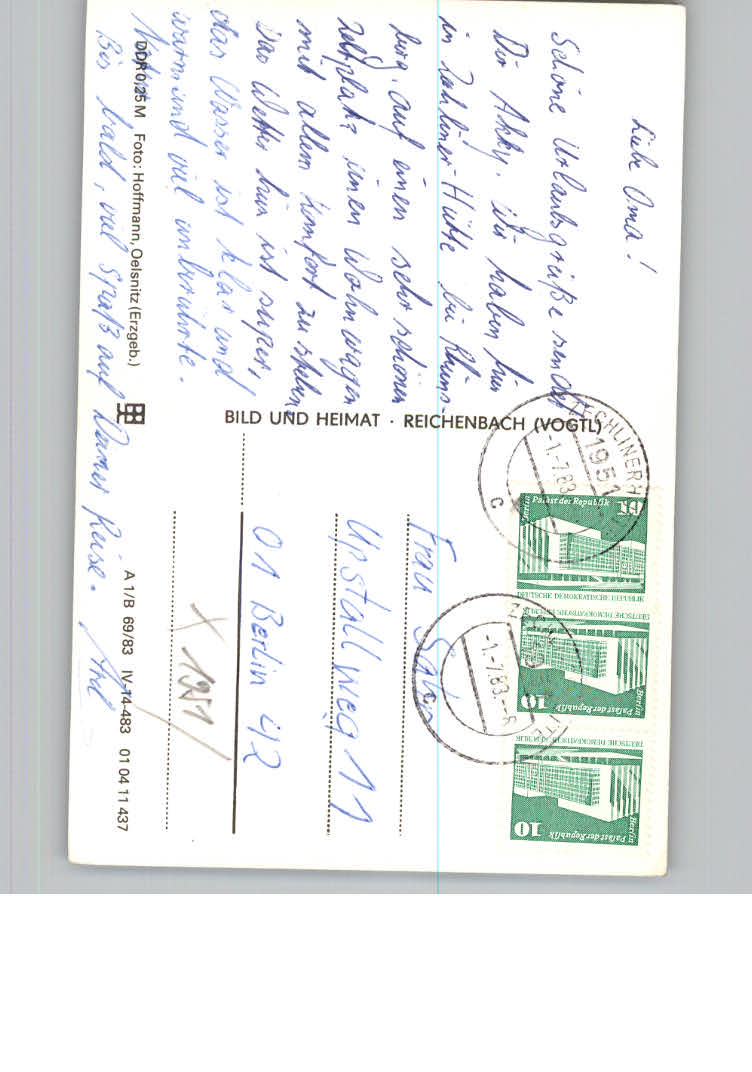 Liebe Oma!
Schöne Urlaubsgrüße sendet
Dir Akky. Wir haben hier
in Zechliner-Hütte bei Rheins-
berg, auf einen sehr schönen
Zeltplatz einen Wohnwagen
mit allem Komfort zu stehen.
Das Wetter hier ist super,
das Wasser ist klar und
warm und viel unberührte
Natur.
Bis bald, viel Spaß auf Deiner Reise.
DDR 0,25 M Foto: Hoffmann, Oelsnitz (Erzgeb.)
BILD UND HEIMAT · REICHENBACH (VOGTL)
A 1/B 69/83 IV-14-483 01 04 11 437
Frau
Upstallweg 11
01 Berlin 42
X 1951
ZECHLINERHÜTTE
1951
-1.-7.83
c
Palast der Republik
Berlin
10
DEUTSCHE DEMOKRATISCHE REPUBLIK
DEUTSCHE DEMOKRATISCHE REPUBLIK
Berlin
Palast der Republik
10
-1.-7.83
c
DEUTSCHE DEMOKRATISCHE REPUBLIK
Berlin
Palast der Republik
10